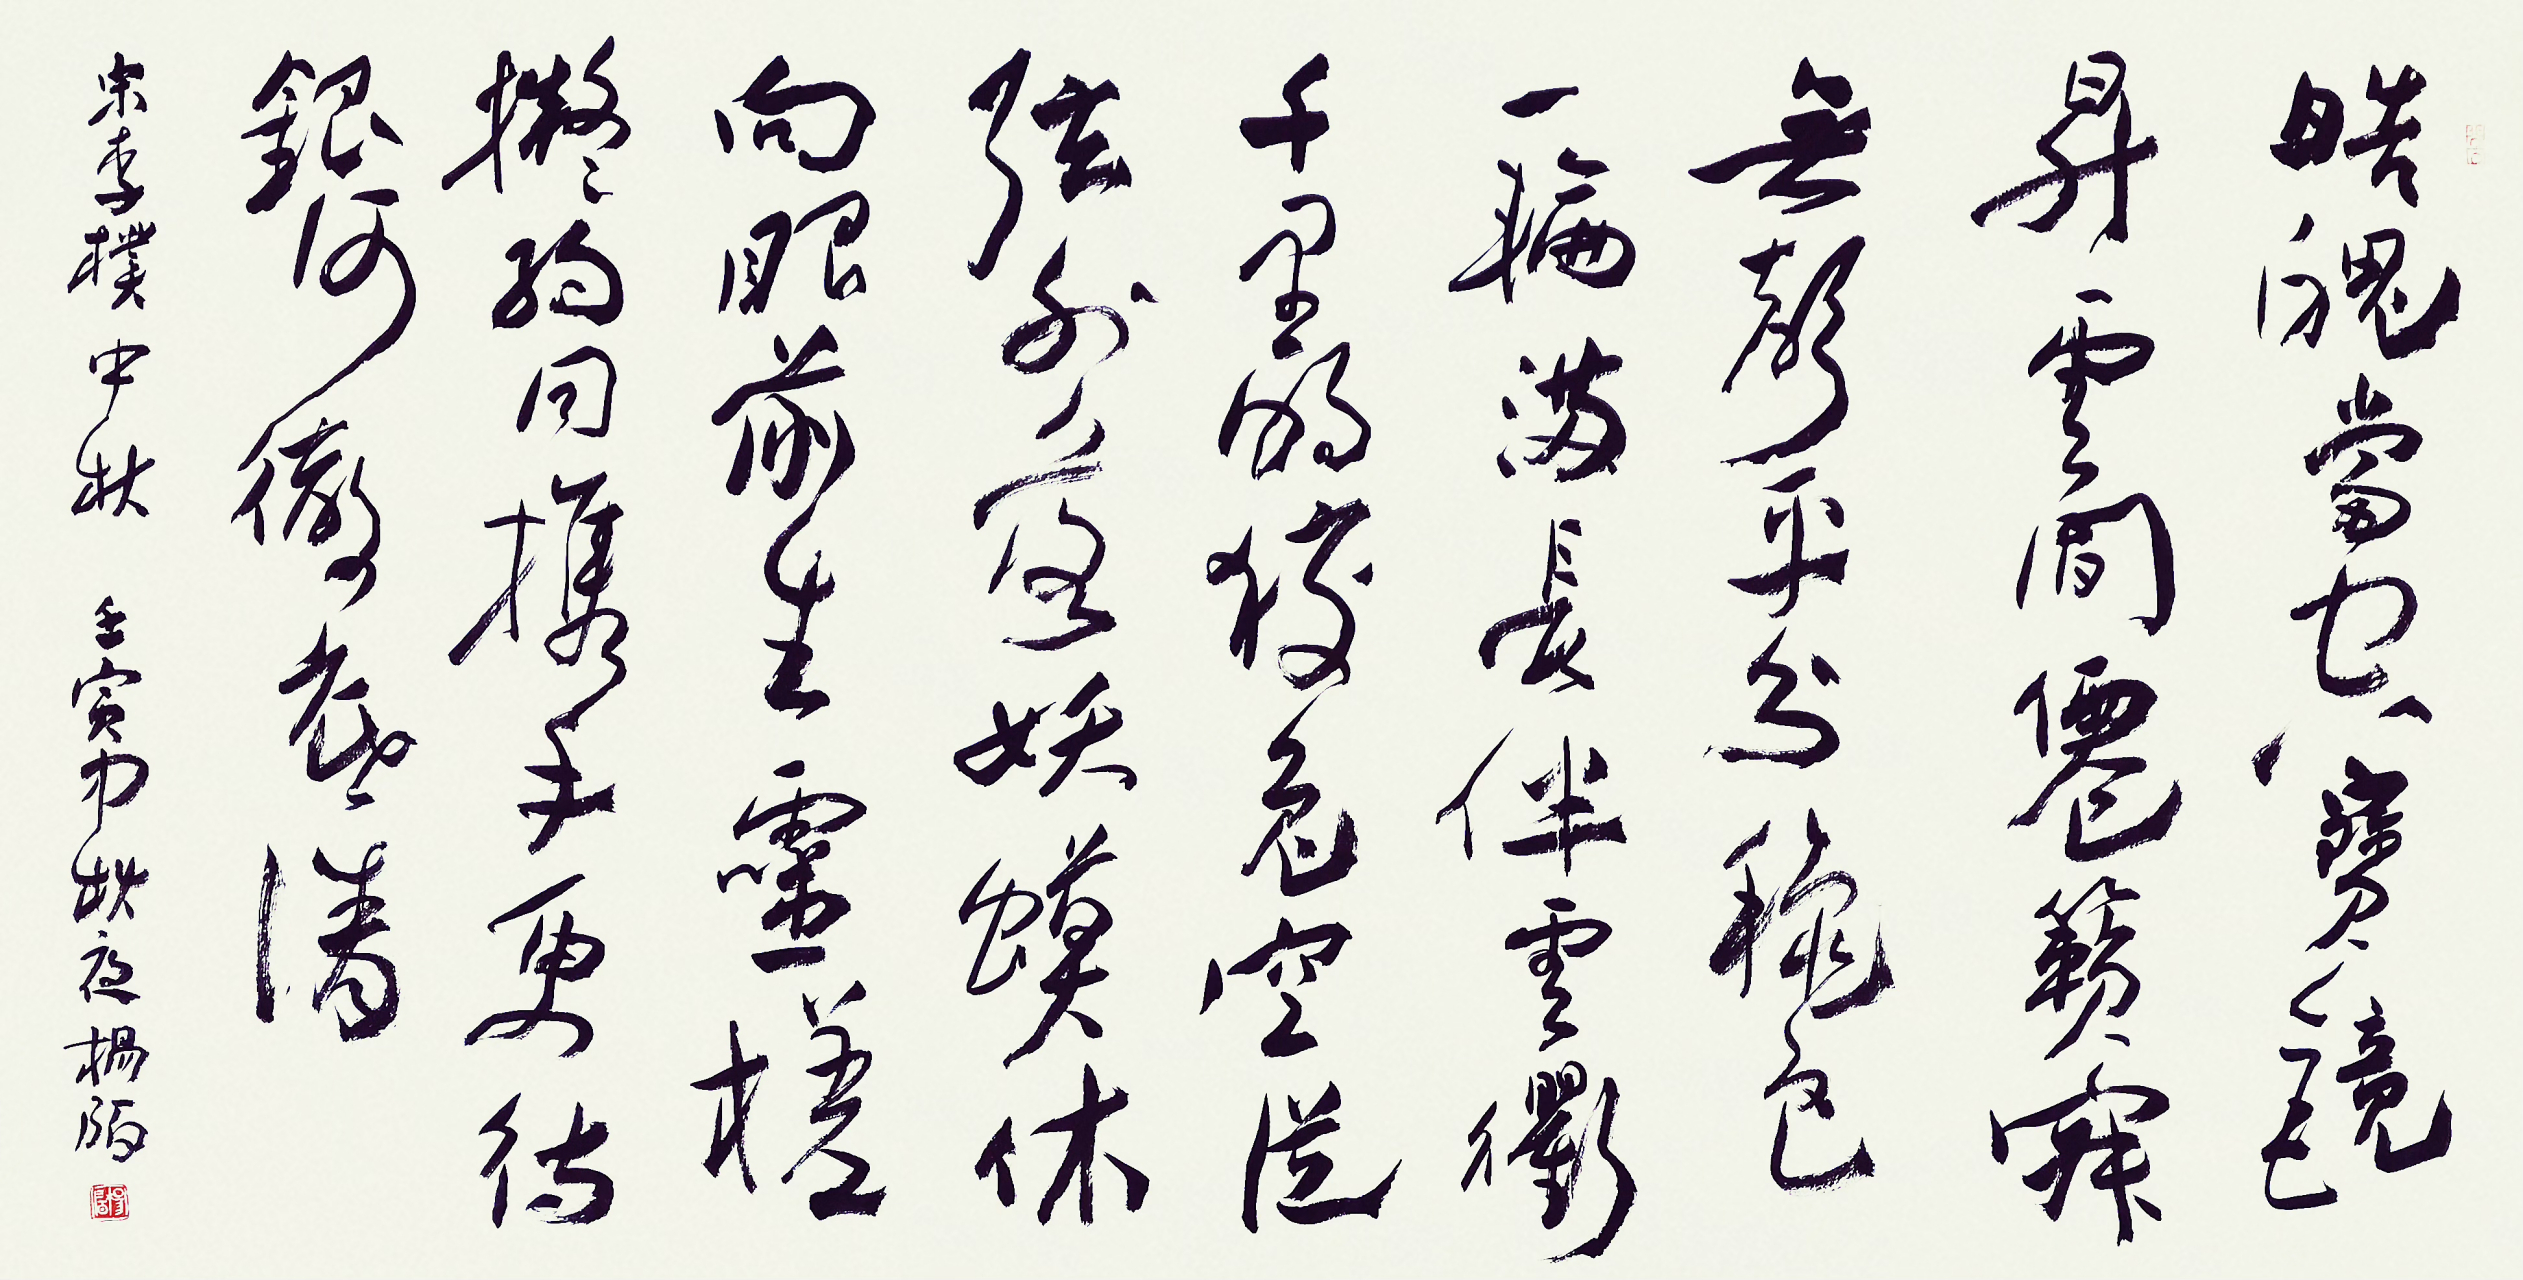 皓魄當空寶鏡
昇雲間僊籟寂
無聲平分穐色
一輪滿長伴雲衢
千里明狡兔空從
弦外落妖蟆休
向眼前生靈槎
擬約同攜手更待
銀河徹底清
宋李樸中秋 壬寅中秋夜楊陌